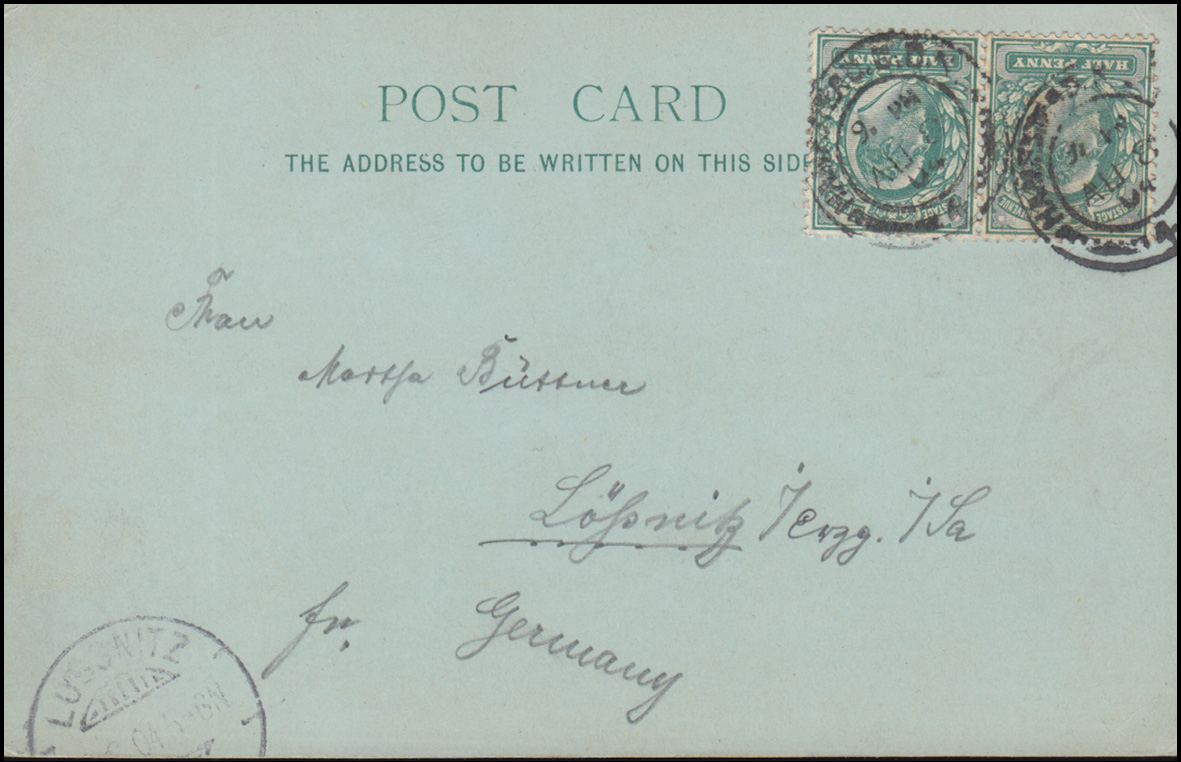 POST CARD
THE ADDRESS TO BE WRITTEN ON THIS SIDE
HALF PENNY
HALF PENNY
POSTAGE
POSTAGE
Frau
Martha Büttner
Lößnitz i/Erzg. i/Sa
fr. Germany
LOESSNITZ
04